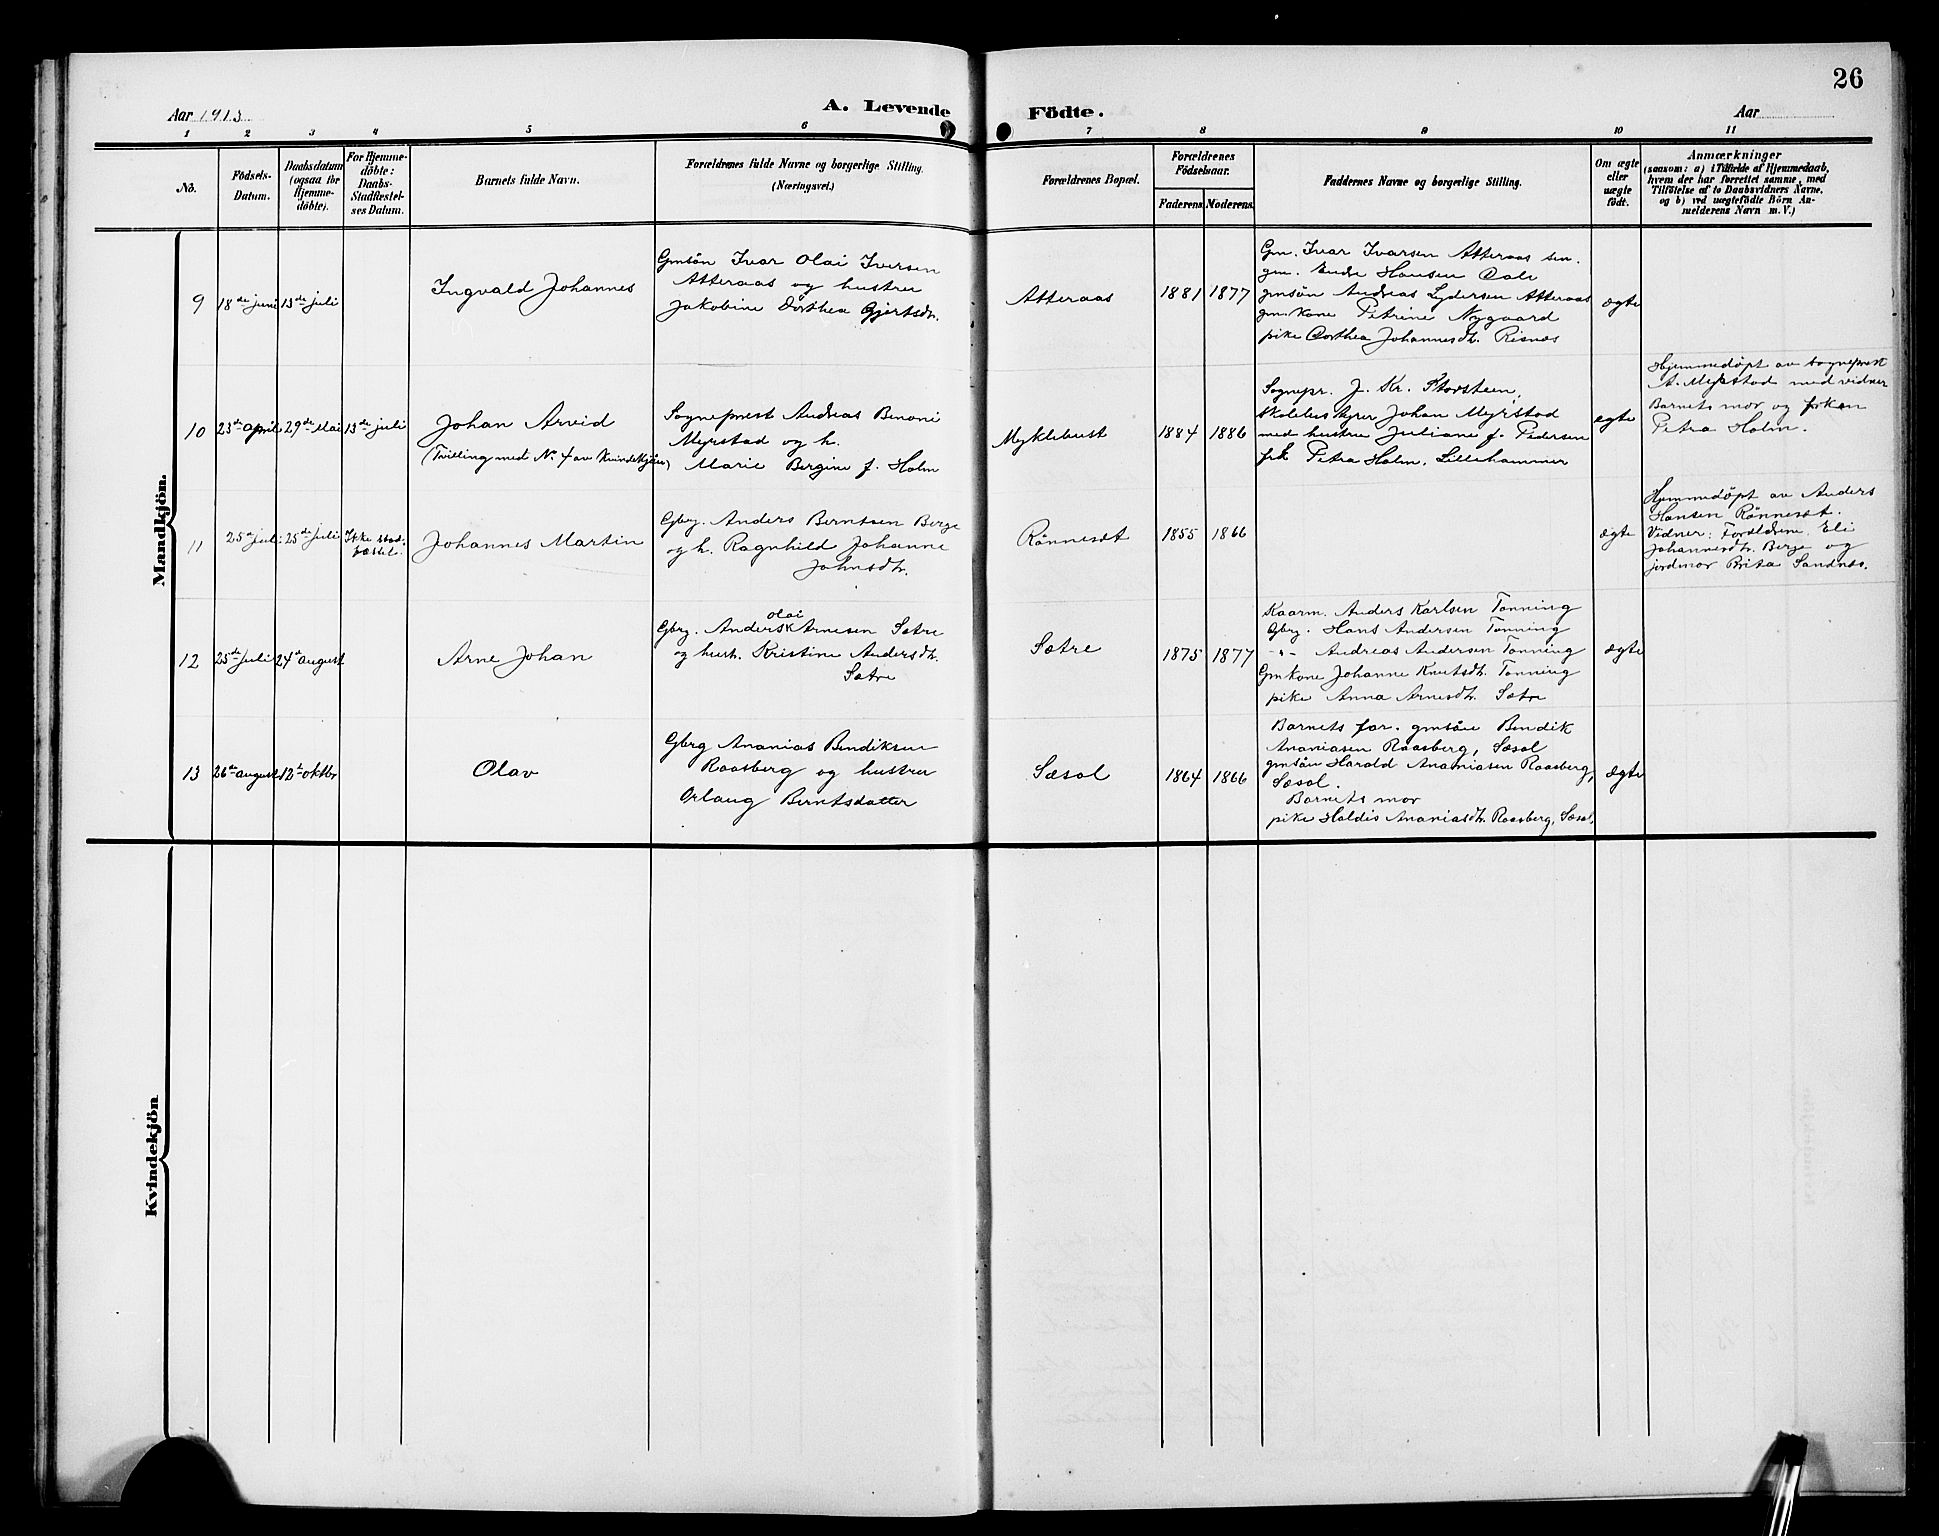 26
Aar 1913
A. Levende Födte.
Aar
1 2 3 4 5 6 7 8 9 10 11
No.
Födsels-
Datum.
Daabsdatum
(ogsaa for
Hjemme-
döbte).
For Hjemme-
döbte:
Daabs-
Stadfæstel-
ses Datum.
Barnets fulde Navn.
Forældrenes fulde Navne og borgerlige Stilling.
(Næringsvei.)
Forældrenes Bopæl.
Forældrenes
Födselsaar.
Faderens Moderens
Faddernes Navne og borgerlige Stilling.
Om ægte
eller
uægte
födt.
Anmærkninger
(saasom: a) i Tilfælde af Hjemmedaab,
hvem der har forrettet samme, med
Tilföielse af to Daabsvidners Navne,
og b) ved uægtefödte Börn An-
melderens Navn m. V.)
Mandkjön.
9
18de juni
13de juli
Ingvald Johannes
Gmsön Ivar Olai Iversen
Atteraas og hustru
Jakobine Dorthea Gjertsdtr.
Atteraas
1881
1877
Gm. Ivar Ivarsen Atteraas sen.
gm. Endre Hansen Dale
gmsön Andreas Lydersen Atteraas
gm. kone Petrine Nygaard
pike Dorthea Johannesdtr. Risnes
ægte
10
23de april
29de Mai
13de juli
Johan Arvid
(Tvilling med No 4 av Kvindekjön)
Sogneprest Andreas Benoni
Myrstad og h.
Marie Bergine f. Holm
Myklebust
1884
1886
Sognepr. J. Kr. Storsteen,
skolebestyrer Johan Myrstad
med hustru Juliane f. Pedersen
frk Petra Holm, Lillehammer
ægte
Hjemmedøpt av sogneprest
A. Myrstad med vidner
Barnets mor og frøken
Petra Holm.
11
25de juli
25de juli
Ikke stad-
fæstet.
Johannes Martin
Gbrg. Anders Berntsen Berge
og h. Ragnhild Johanne
Johnsdtr.
Rönnesæt
1855
1866
ægte
Hjemmedøpt av Anders
Hansen Rönnesæt.
Vidner: Forældrene, Eli
Johannesdtr. Berge og
jordmor Brita Sandnes.
12
25de juli
24de august
Arne Johan
Olai
Gbrg. Anders Arnesen Sætre
og hust. Kristine Andersdtr.
Sætre
Sætre
1875
1877
Kaarm. Anders Karlsen Tonning
Gbrg. Hans Andersen Tonning
-"- Andreas Andersen Tonning
Gmkone Johanne Knutsdtr. Tonning
pike Anna Arnesdtr. Sætre
ægte
13
26de august
12te oktbr
Olav
Gbrg Ananias Bendiksen
Raasberg og hustru
Orlaug Berntsdatter
Sæsol
1864
1866
Barnets far. gmsön Bendik
Ananiasen Raasberg, Sæsol
gmsön Harald Ananiasen Raasberg,
Sæsol.
Barnets mor
pike Haldis Ananiasdtr. Raasberg, Sæsol,
ægte
Kvindekjön